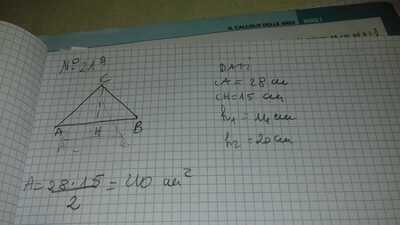 IL CALCOLO DELLE AREE
N° 219
C
A H B
DATI
A = 28 cm
CH = 15 cm
h1 = 14 cm
h2 = 20 cm
A = 28 · 15 / 2 = 210 cm²